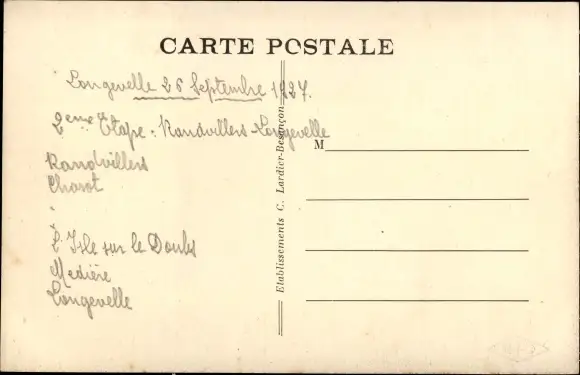 CARTE POSTALE
Longevelle 26 Septembre 1927.
2eme Etape : Randvillers-Longevelle
M
Randvillers
Chazot
"
L'Isle sur le Doubs
Medière
Longevelle
Etablissements C. Lardier-Besançon